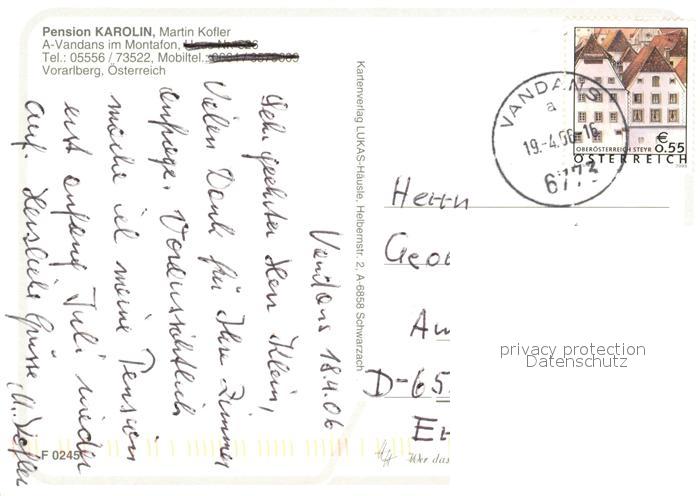 Pension KAROLIN, Martin Kofler
A-Vandans im Montafon,
Tel.: 05556 / 73522, Mobiltel.:
Vorarlberg, Österreich
Vandans 18.4.06
Sehr geehrter Herr Klein,
Vielen Dank für Ihre Zimmer
anfrage. Voraussichtlich
mache ich meine Pension
erst anfang Juli wieder
auf. Herzliche Grüsse M. Kofler
F 0245
Kartenverlag LUKAS-Häusle, Helbernstr. 2, A-6858 Schwarzach
VANDANS
a
19.-4.06-16
6773
OBERÖSTERREICH STEYR
€ 0.55
ÖSTERREICH
Herrn
D-65
Wer das
privacy protection
Datenschutz